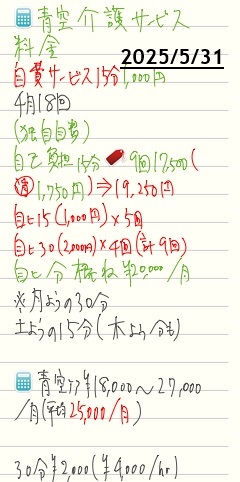 青空介護サービス
料金
2025/5/31
自費サービス15分1,000円
4月18回
(独自自費)
自己負担15分 9回17,500(
1,750円)⇒19,250円
自ヒ15(1,000円)×5回
自ヒ30(2,000円)×4回(計9回)
自ヒ分概ね¥20,000/月
※月ようの30分
土ようの15分(木よう分も)
青空ケア¥18,000~27,000
/月(平均25,000/月)
30分¥2,000(¥4,000/hr)